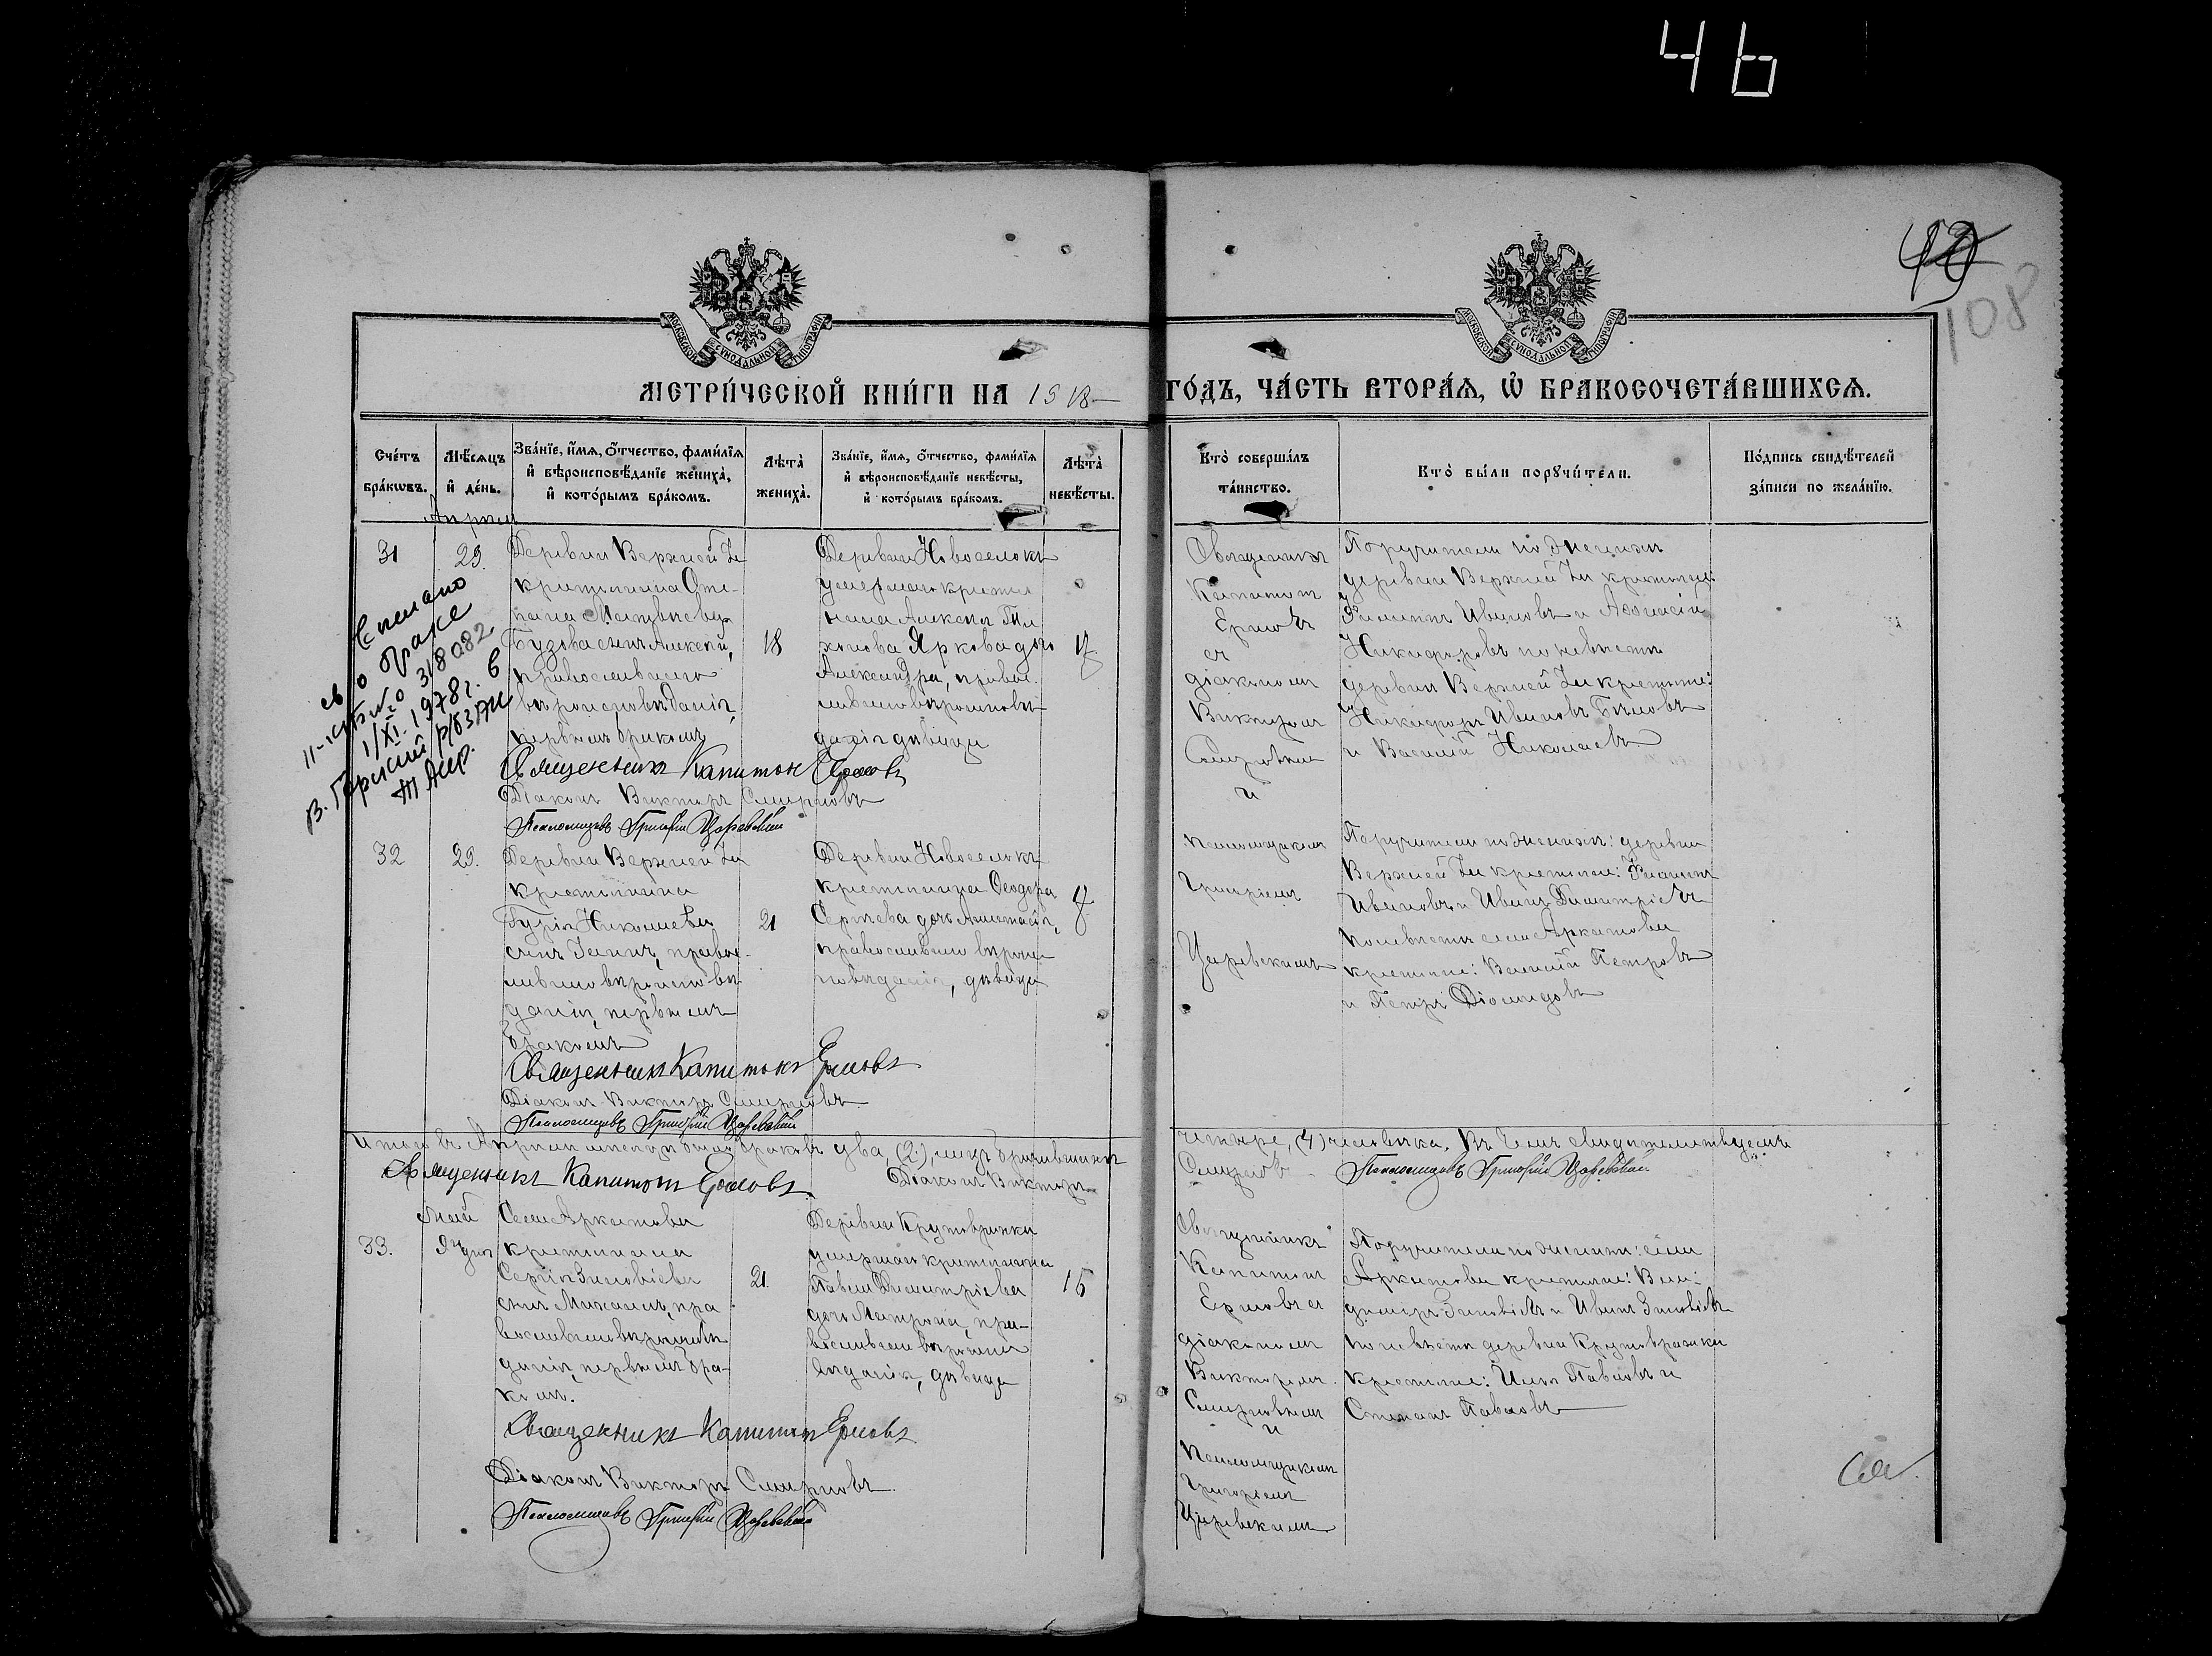 46
108
МОСКОВСКОЙ СУНОДАЛЬНОЙ ТИПОГРАФІИ
МОСКОВСКОЙ СУНОДАЛЬНОЙ ТИПОГРАФІИ
МЕТРИ́ЧЕСКОЙ КНИ́ГИ НА 1918 ГО́ДЪ, ЧА́СТЬ ВТОРА́Я, Ѡ҆ БРАКОСОЧЕТА́ВШИХСЯ.
Сче́тъ бра́кѡвъ.
Мѣ́сяцъ и҆ де́нь.
Зва́нїе, и҆́мя, ѻ҆́тчество, фами́лїя
и҆ вѣроисповѣ́данїе жениха̀,
и҆ кото́рымъ бра́комъ.
Лѣта̀ жениха̀.
Зва́нїе, и҆́мя, ѻ҆́тчество, фами́лїя
и҆ вѣроисповѣ́данїе невѣ́сты,
и҆ кото́рымъ бра́комъ.
Лѣта̀ невѣ́сты.
Кто̀ соверша́лъ та́инство.
Кто̀ бы́ли порꙋчи́тели.
По́дпись свидѣ́телей за́писи по жела́нїю.
Апрѣль
31
29.
Деревни Верхней
крестьянина Сте-
пана Матвѣева
Бузова сынъ Алексѣй,
православнаго
вѣроисповѣданія,
первымъ бракомъ
18
Деревни Новоселокъ
умершаго крестья
нина Алексѣя Ти
хонова Яркова дочь
Александра, правос
лавнаго вѣроисповѣ
данія дѣвица
17
Священникъ
Капитонъ
Ермовъ
съ
діакономъ
Викторомъ
Смирновымъ
и
псаломщикомъ
Григоріемъ
Царевскимъ
Поручители по женихѣ
деревни Верхней крестьяне:
Филиппъ Ивановъ и Аѳанасій
Никифоровъ по невѣстѣ
деревни Верхней крестьяне:
Никифоръ Ивановъ Бѣловъ
и Василій Николаевъ
о браке
318082
1/XI. 1978 г. в
Священникъ Капитонъ Ермовъ
Діаконъ Викторъ Смирновъ
Псаломщикъ Григорій Царевскій
32
29.
Деревни Верхней
крестьянина
Гурія Николаева
сынъ правос-
лавнаго вѣроисповѣ
данія, первымъ
бракомъ
21
Деревни Новоселокъ
крестьянина Ѳеодора
Сергѣева дочь Анастасія,
православнаго вѣроис
повѣданія, дѣвица
Поручители по женихѣ: деревни
Верхней крестьяне: Филиппъ
Ивановъ и Иванъ Димитріевъ
по невѣстѣ села Аркатова
крестьяне: Василій Петровъ
и Петръ Діомидовъ
Священникъ Капитонъ Ермовъ
Діаконъ Викторъ Смирновъ
Псаломщикъ Григорій Царевскій
Итого въ Апрѣлѣ мѣсяцѣ было браковъ два, (2), лицъ бравшихся четыре, (4) человѣка. Въ чемъ свидѣтельствуемъ
Священникъ Капитонъ Ермовъ Діаконъ Викторъ Смирновъ Псаломщикъ Григорій Царевскій
Май
33.
Села Аркатова
крестьянина
Сергія Зиновіева
сынъ Михаилъ, пра
вославнаго вѣроисповѣ
данія, первымъ бра-
комъ.
21.
Деревни Крутовражки
умершаго крестьянина
Павла Димитріева
дочь Матрона, пра-
вославнаго вѣроиспо
вѣданія, дѣвица
16
Священникъ
Капитонъ
Ермовъ съ
діакономъ
Викторомъ
Смирновымъ
и
псаломщикомъ
Григоріемъ
Царевскимъ
Поручители по женихѣ: села
Аркатова крестьяне: Вла-
диміръ Зиновіевъ и Иванъ Зиновіевъ
по невѣстѣ деревни Крутовражки
крестьяне: Илья Павловъ и
Степанъ Павловъ
Священникъ Капитонъ Ермовъ
Діаконъ Викторъ Смирновъ
Псаломщикъ Григорій Царевскій